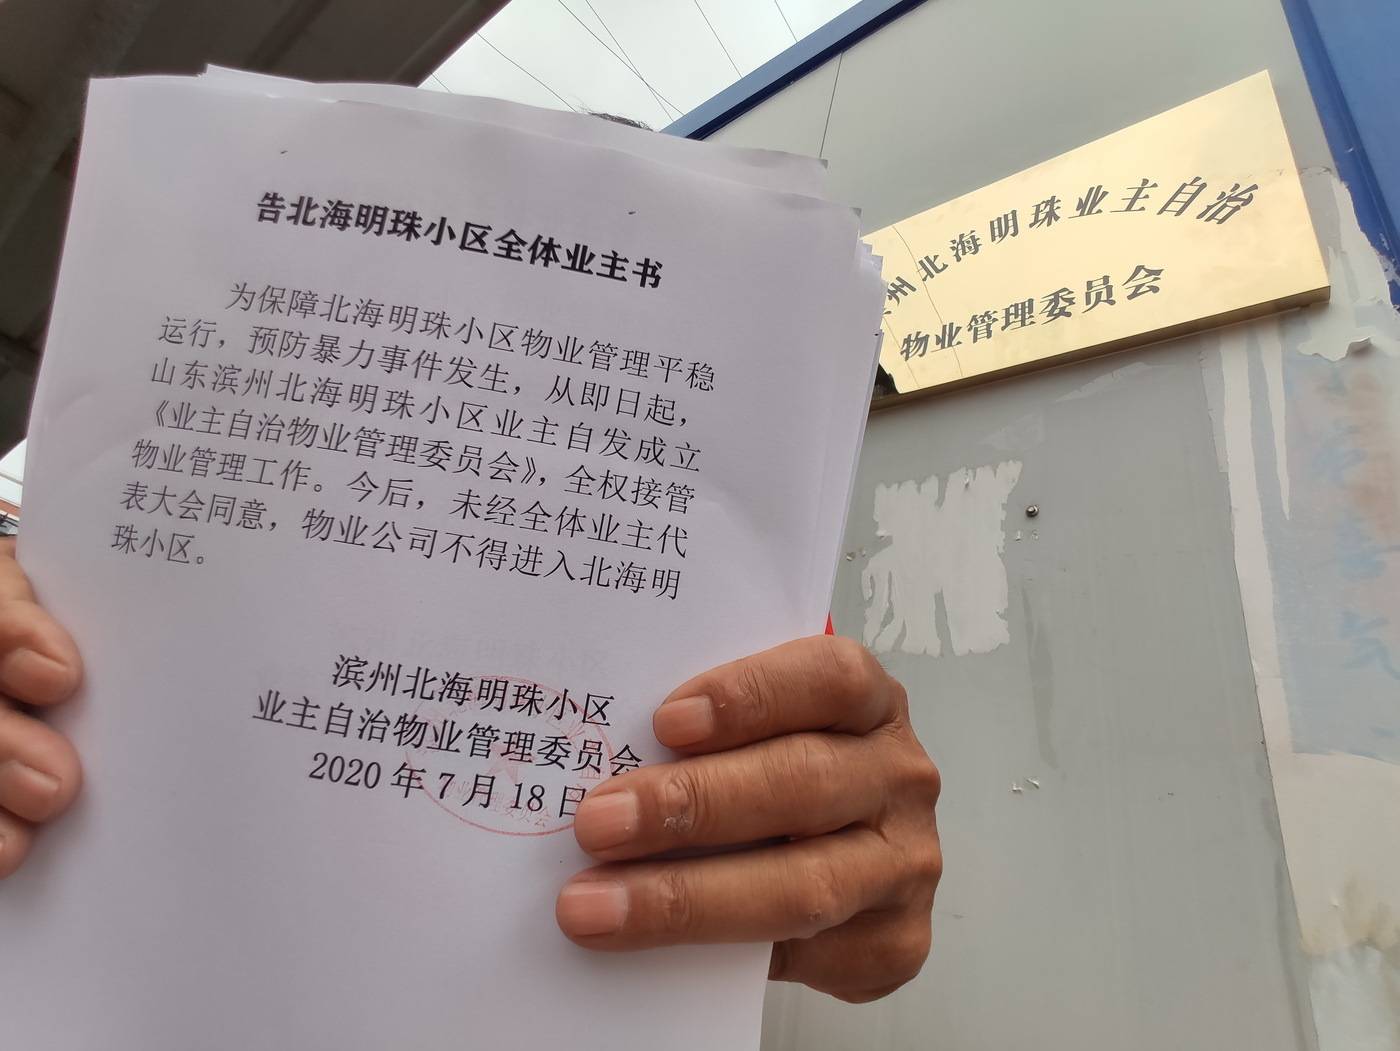 告北海明珠小区全体业主书
为保障北海明珠小区物业管理平稳
运行，预防暴力事件发生，从即日起，
山东滨州北海明珠小区业主自发成立
《业主自治物业管理委员会》，全权接管
物业管理工作。今后，未经全体业主代
表大会同意，物业公司不得进入北海明
珠小区。
滨州北海明珠小区
业主自治物业管理委员会
2020年7月18日
州北海明珠业主自治
物业管理委员会